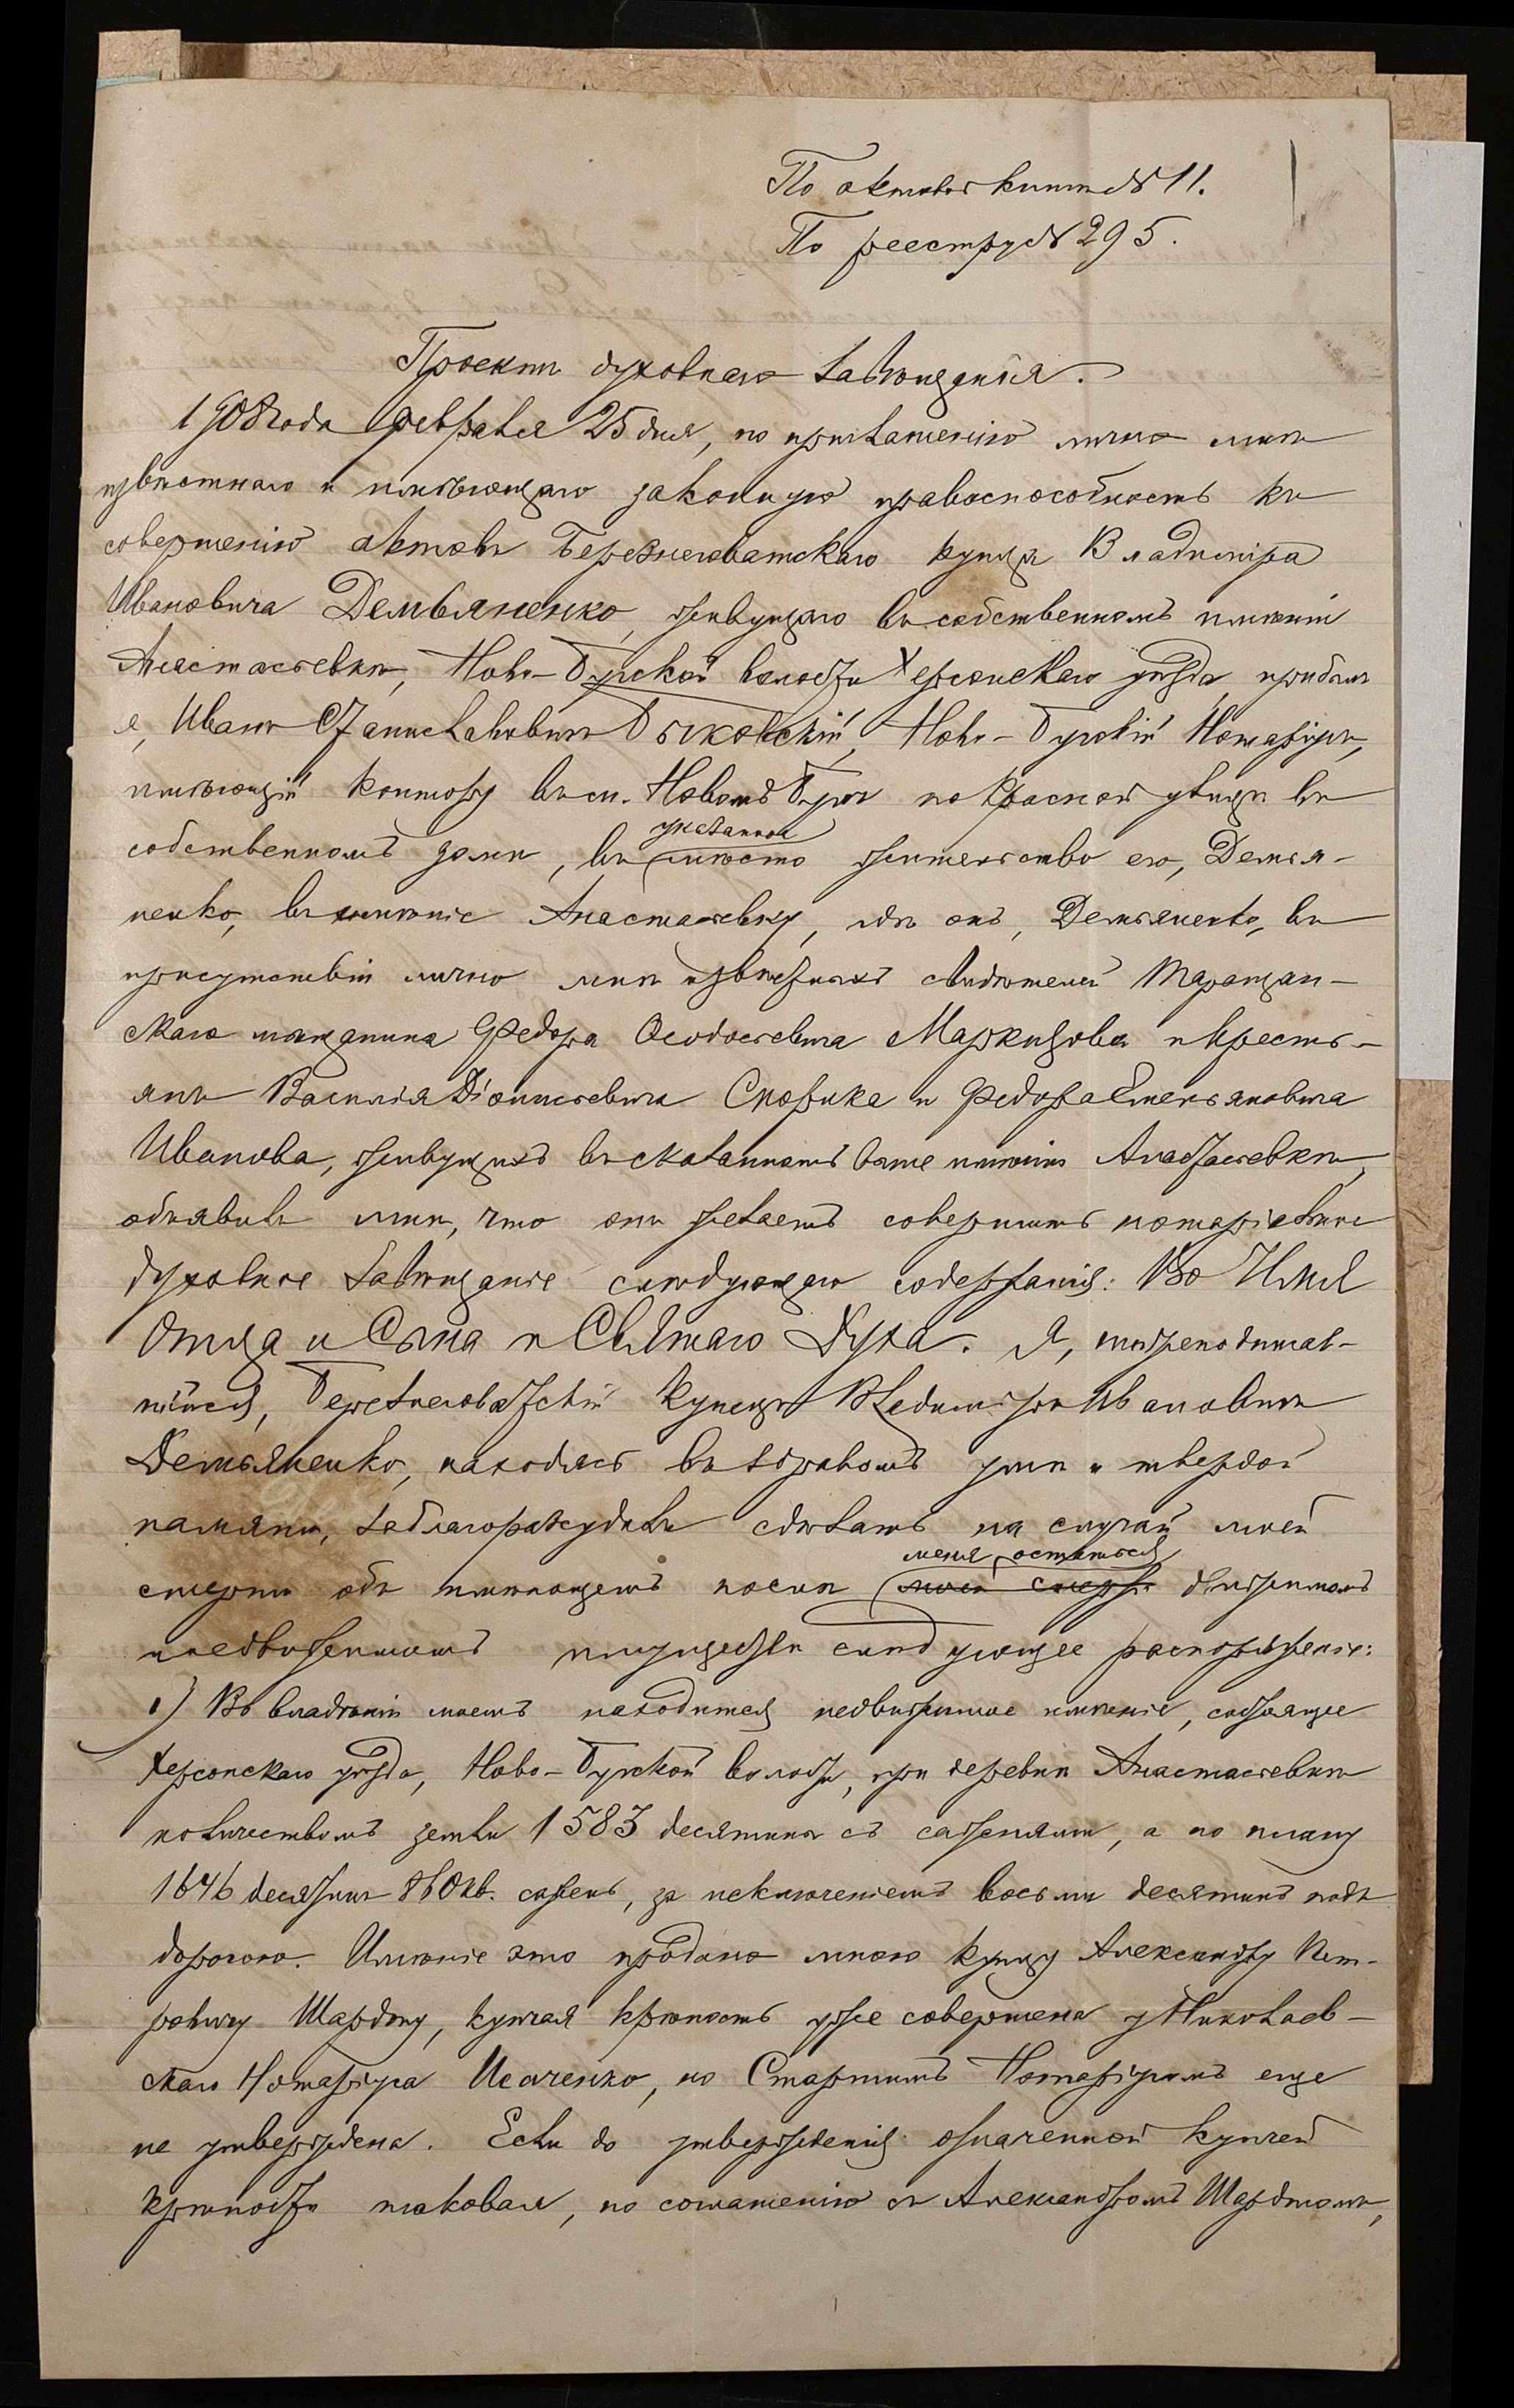 По актовой книге № 11.
По реестру № 295.
Проектъ духовнаго завѣщанія.
1908 года февраля 25 дня, по приглашенію лично мнѣ
извѣстнаго и имѣющаго законную правоспособность къ
совершенію актовъ Березнеговатскаго купца Владиміра
Ивановича Демьяненко, живущаго въ собственномъ имѣніи
Анастасьевкѣ, Ново-Бугской волости Херсонскаго уѣзда, прибылъ
я, Иванъ Станиславовичъ Быковскій, Ново-Бугскій Нотаріусъ,
имѣющій контору въ м. Новомъ Бугѣ по Красной улицѣ въ
собственномъ домѣ, въ указанное мѣсто жительство его, Демья-
ненко, въ имѣніе Анастасьевку, гдѣ онъ, Демьяненко, въ
присутствіи лично мнѣ извѣстныхъ свидѣтелей Таращан-
скаго мѣщанина Федора Феодосьевича Маркицова и кресть-
янъ Василія Діонисьевича Скорика и Федора Емельяновича
Иванова, живущихъ въ сказанномъ выше имѣніи Анастасьевкѣ,
объявилъ мнѣ, что онъ желаетъ совершить нотаріальное
духовное завѣщаніе слѣдующаго содержанія: Во Имя
Отца и Сына и Святаго Духа. Я, нижеподписав-
шійся, Березнеговатскій купецъ Владиміръ Ивановичъ
Демьяненко, находясь въ здравомъ умѣ и твердой
памяти, заблагоразсудилъ сдѣлать на случай моей
смерти объ имѣющемъ послѣ меня остаться моей смерти движимомъ
и недвижимомъ имуществѣ слѣдующее распоряженіе:
1) Во владѣніи моемъ находится недвижимое имѣніе, состоящее
Херсонскаго уѣзда, Ново-Бугской волости, при деревнѣ Анастасьевкѣ
количествомъ земли 1583 десятины съ саженями, а по плану
1646 десятинъ 860 кв. сажень, за исключеніемъ восьми десятинъ подъ
дорогою. Имѣніе это продано мною купцу Александру Пет-
ровичу Шардту, купчая крѣпость уже совершена у Николаев-
скаго Нотаріуса Исаченко, но Старшимъ Нотаріусомъ еще
не утверждена. Если до утвержденія означенной купчей
крѣпости таковая, по соглашенію съ Александромъ Шардтомъ,